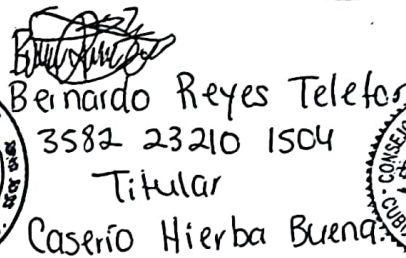 Bernardo Reyes Telefor
3582 23210 1504
Titular
Caserío Hierba Buena.
CONSEJO